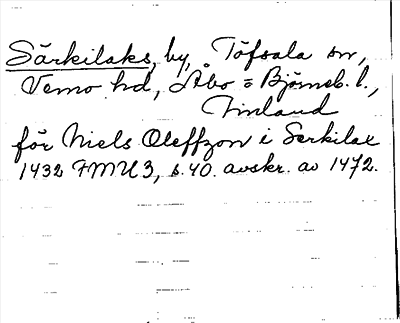 Särkilaks, by, Töfsala sn,
Vemo hd, Åbo = Björneb. l.,
Finland
för Niels Oleffzon i Serkilax
1432 FMU 3, s. 40. avskr. av 1472.